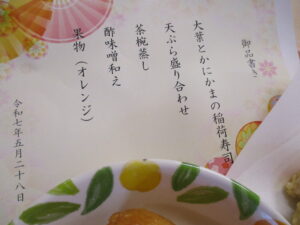 御品書き
大葉とかにかまの稲荷寿司
天ぷら盛り合わせ
茶椀蒸し
酢味噌和え
果物（オレンジ）
令和七年五月二十八日